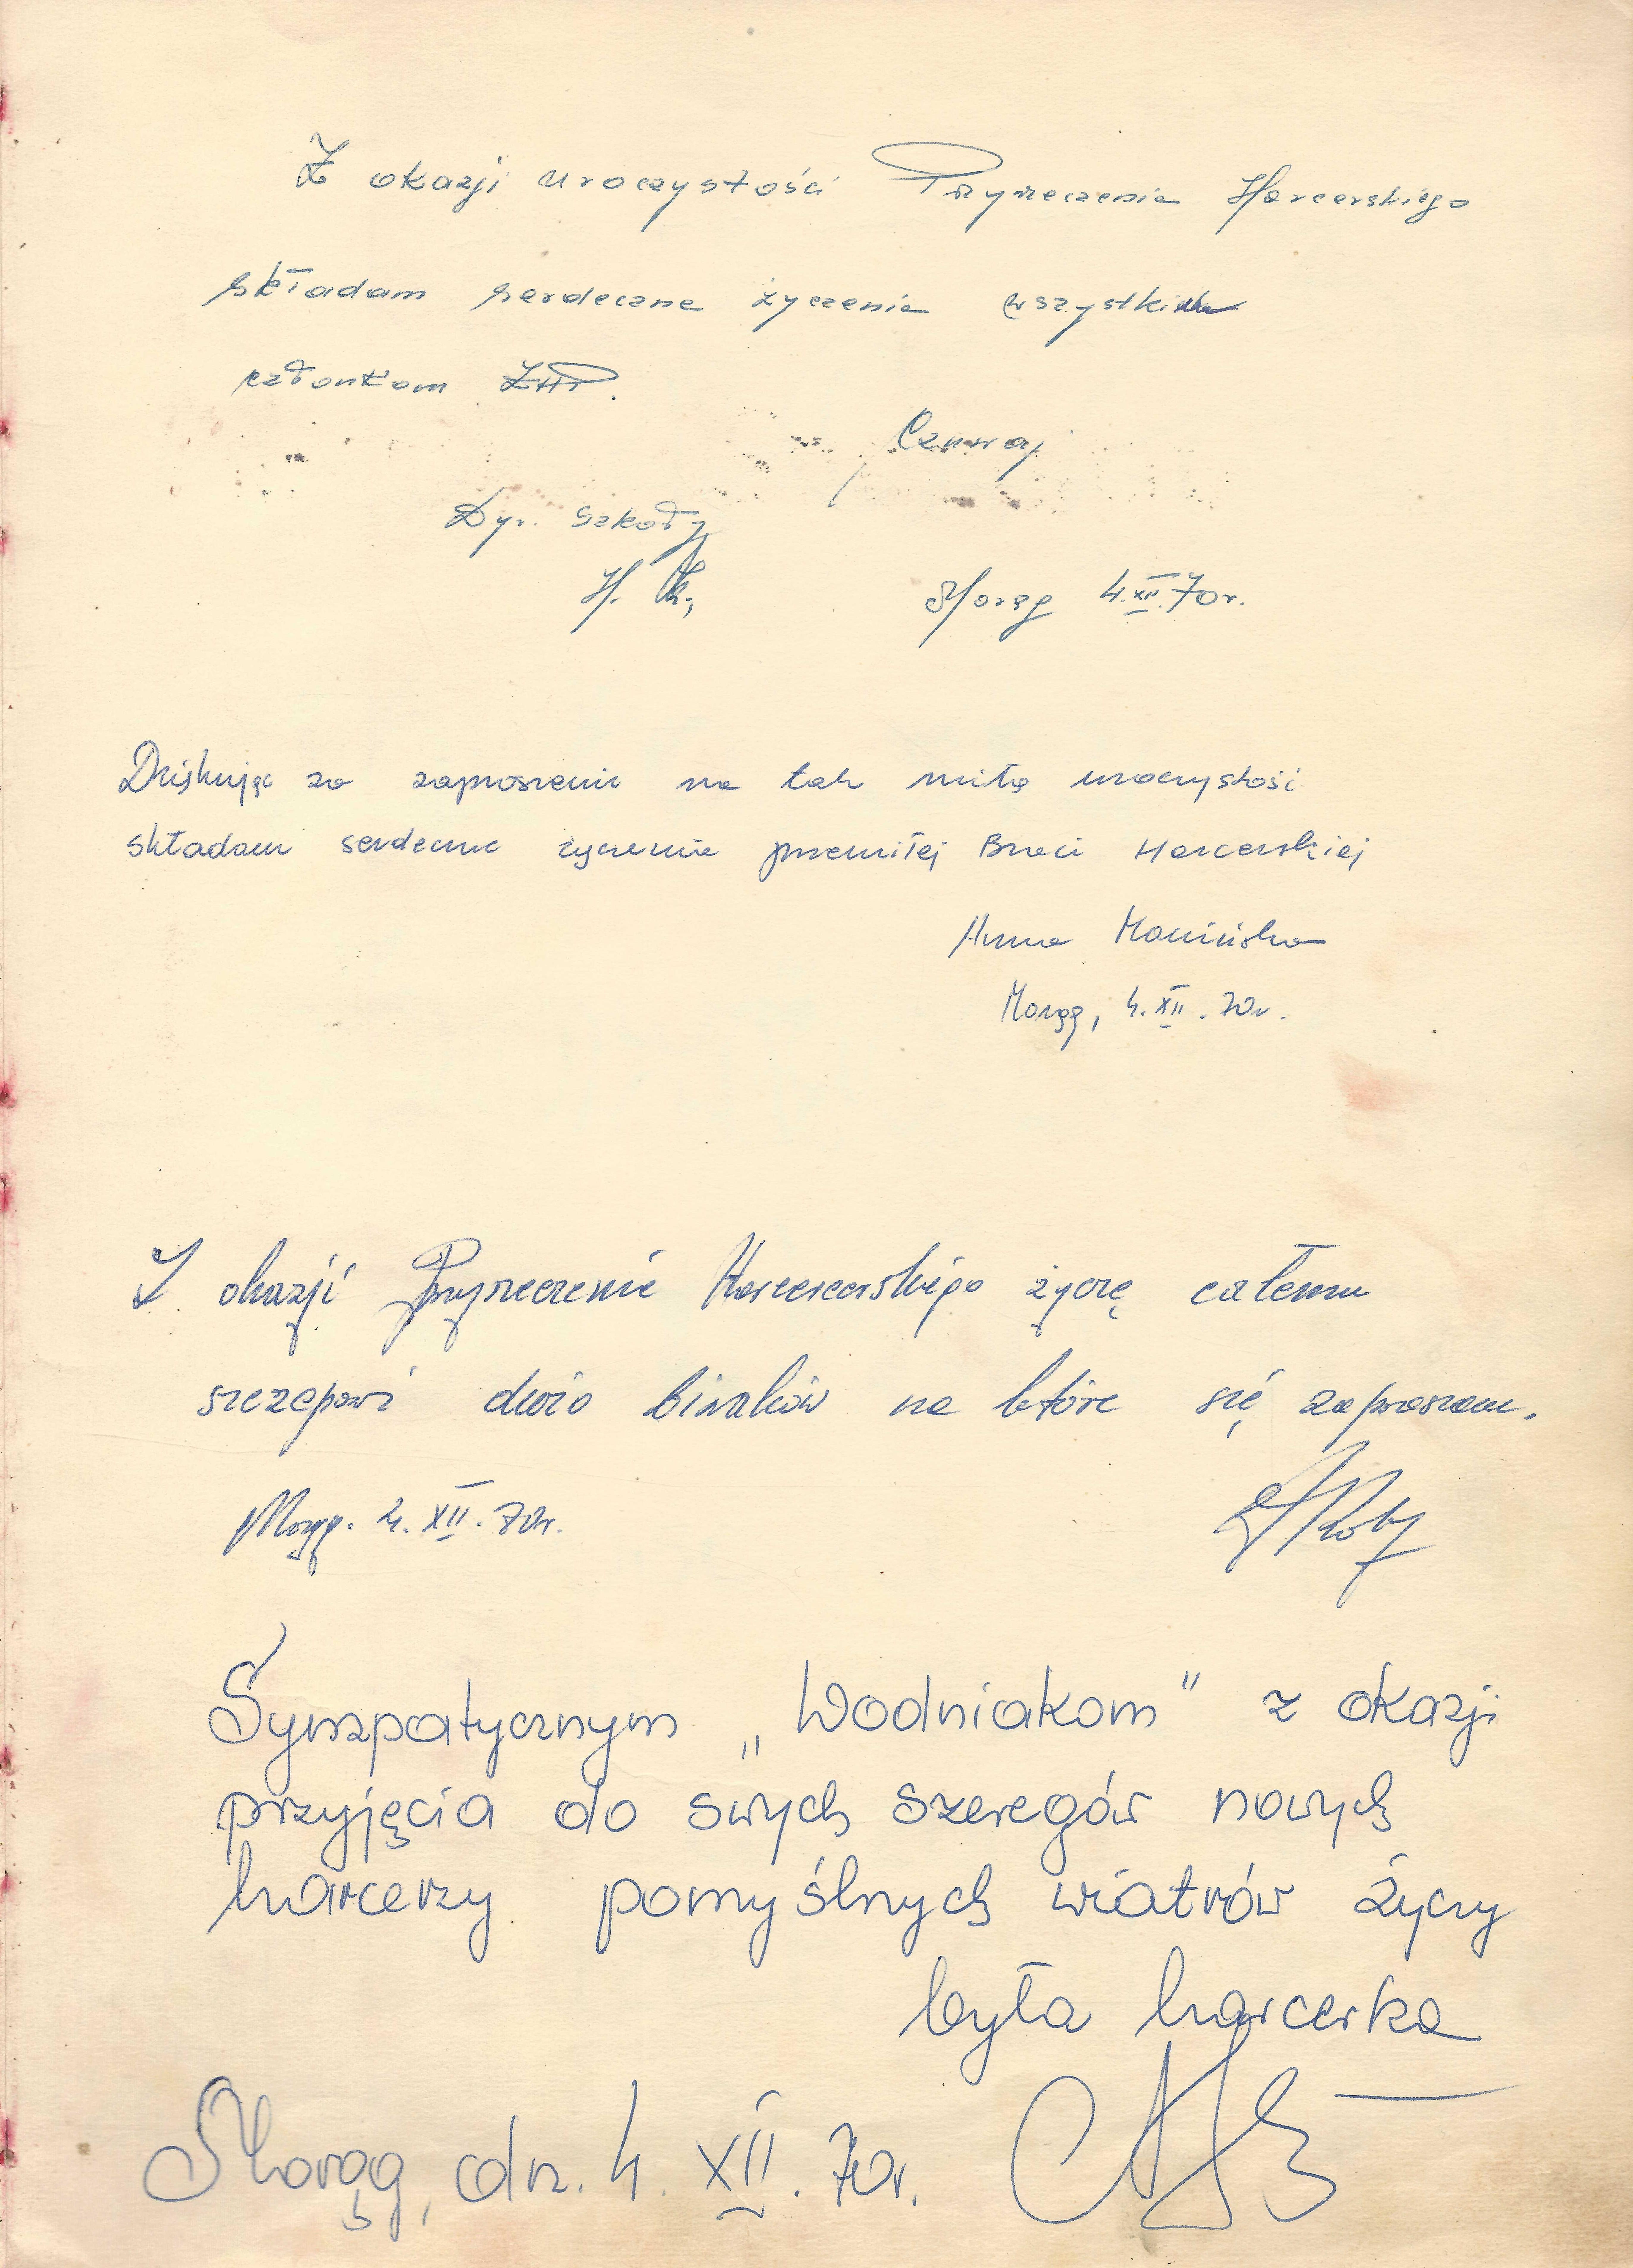 Z okazji uroczystości Przyrzeczenia Harcerskiego
składam serdeczne życzenia wszystkim
członkom ZHP.
Czuwaj
Dyr. Szkoły
H.
Morąg 4.XII.70r.
Dziękując za zaproszenie na tak miłą uroczystość
składam serdeczne życzenia przemiłej Braci Harcerskiej
Anna
Morąg, 4.XII.70r.
Z okazji Przyrzeczenia Harcerskiego życzę całemu
szczepowi dużo biwaków na które się zapraszam.
Morąg. 4.XII.70r.
Sympatycznym „Wodniakom" z okazji
przyjęcia do swych szeregów nowych
harcerzy pomyślnych wiatrów życzy
była harcerka
Morąg, dn. 4.XII.70r.